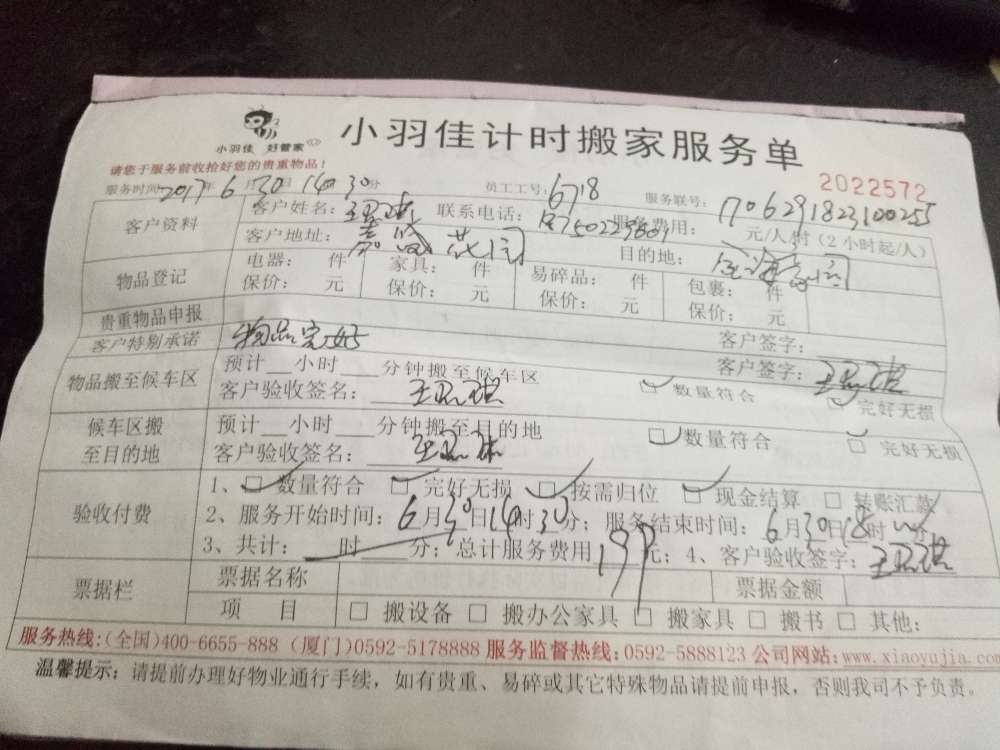 小羽佳 好管家
小羽佳计时搬家服务单
请您于服务前收拾好您的贵重物品!
2022572
服务时间:2017年6月30日14时30分 员工工号:6718 服务联号:170629182310025
客户资料 客户姓名: 联系电话: 服务费用: 元/人/时(2小时起/人)
客户地址: 花园 目的地:
物品登记 电器: 件 家具: 件 易碎品: 件 包裹: 件
保价: 元 保价: 元 保价: 元 保价: 元
贵重物品申报 客户签字:
客户特别承诺 物品完好 客户签字:
物品搬至候车区 预计__小时___分钟搬至候车区
客户验收签名: 数量符合 完好无损
候车区搬至目的地 预计__小时___分钟搬至目的地
客户验收签名: 数量符合 完好无损
验收付费 1、数量符合 完好无损 按需归位 现金结算 转账汇款
2、服务开始时间:6月30日14时30分;服务结束时间:6月30日18时 分
3、共计: 时 分;总计服务费用199元;4、客户验收签字:
票据栏 票据名称 票据金额
项 目 搬设备 搬办公家具 搬家具 搬书 其他:
服务热线:(全国)400-6655-888 (厦门)0592-5178888 服务监督热线:0592-5888123 公司网站:www.xiaoyujia.com
温馨提示:请提前办理好物业通行手续,如有贵重、易碎或其它特殊物品请提前申报,否则我司不予负责。